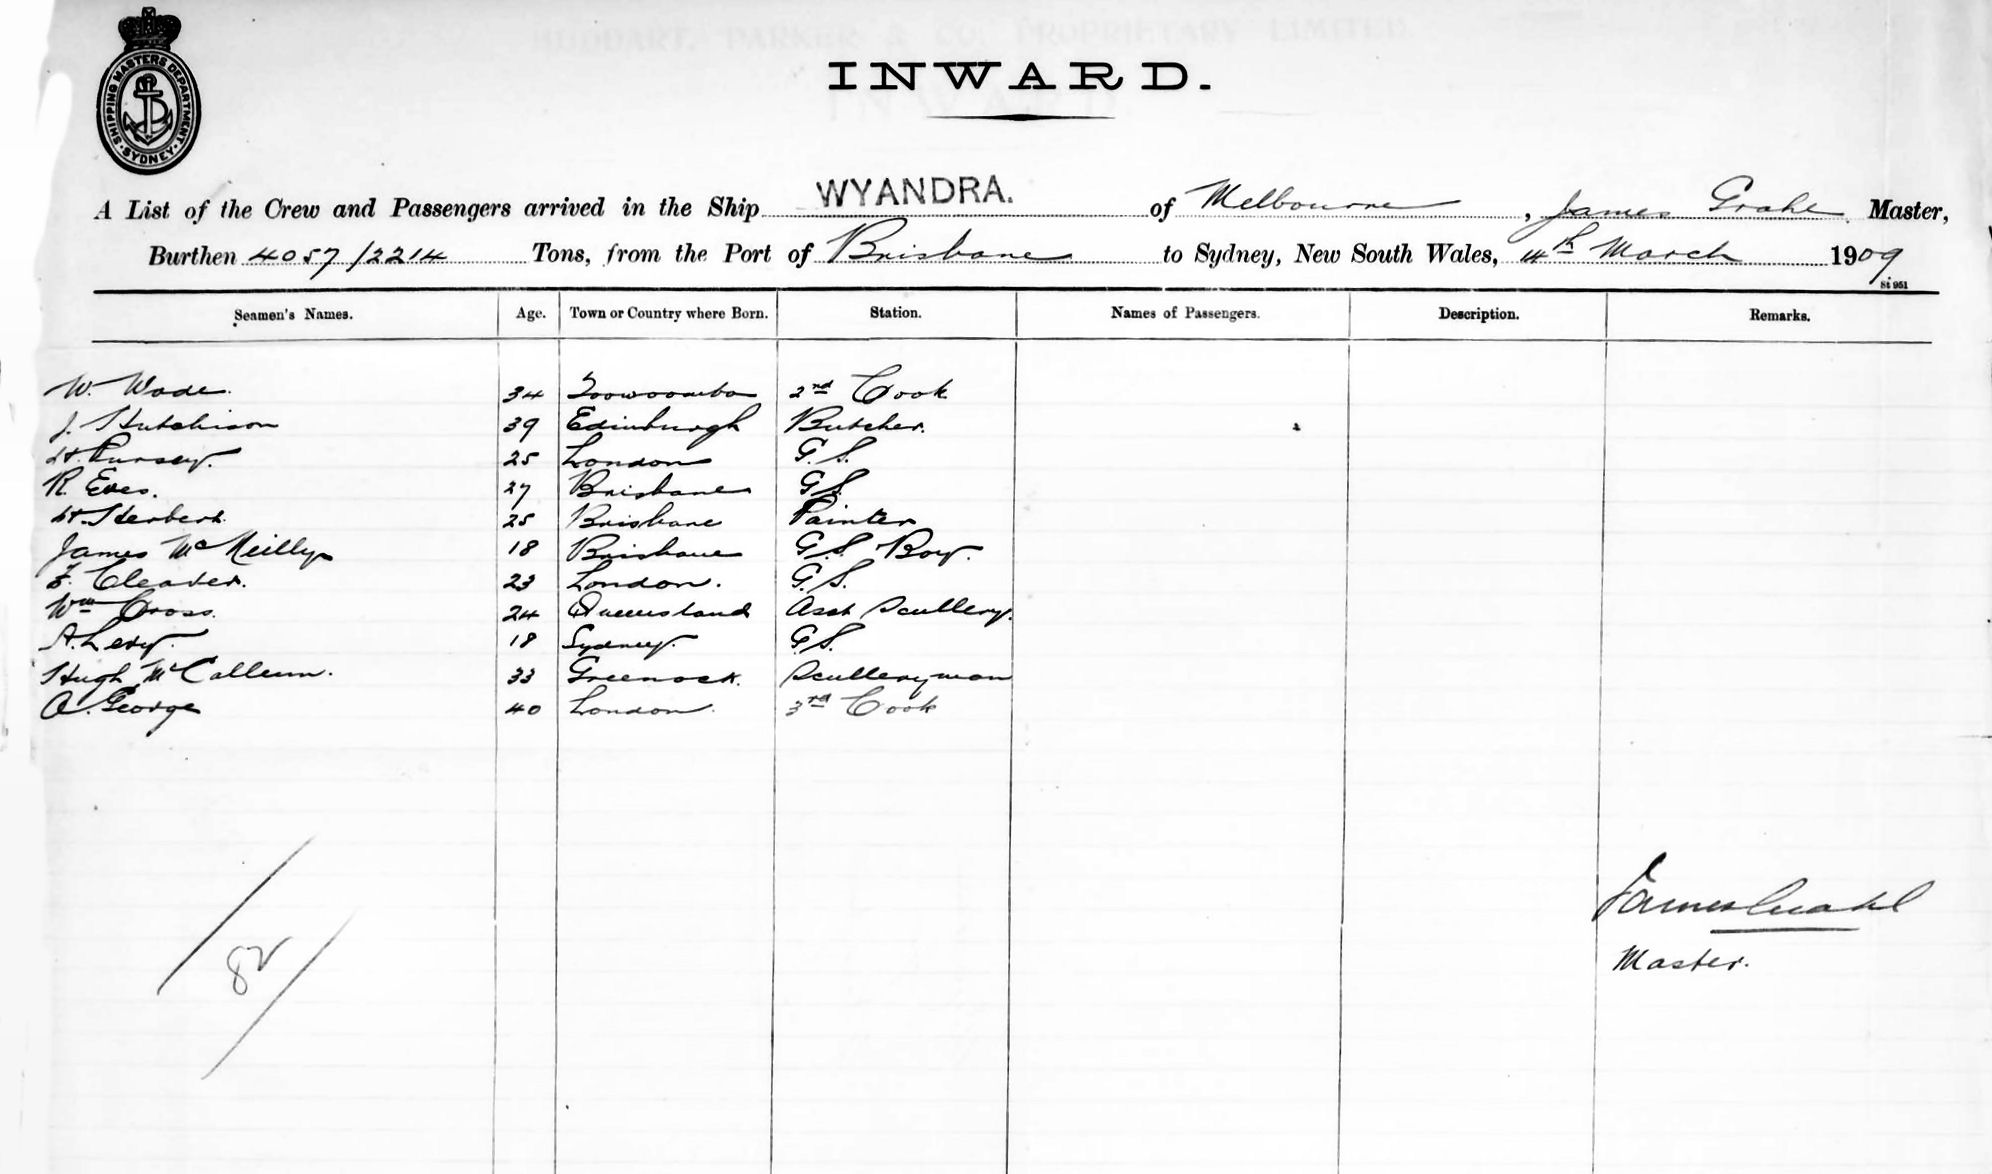 HUDDART, PARKER & CO. PROPRIETARY LIMITED.
SHIPPING MASTERS DEPARTMENT. SYDNEY.
INWARD.
A List of the Crew and Passengers arrived in the Ship WYANDRA. of Melbourne, James Grahl Master,
Burthen 4057/2214 Tons, from the Port of Brisbane to Sydney, New South Wales, 4th March 1909
St 951
Seamen's Names. Age. Town or Country where Born. Station. Names of Passengers. Description. Remarks.
W. Wade. 34 Toowoomba 2nd Cook
J. Hutchison 39 Edinburgh Butcher.
H. Pursey. 25 London G.S.
R. Eves. 27 Brisbane G.S.
H. Herbert. 25 Brisbane Painter
James McNeilly 18 Brisbane G.S. Boy.
F. Cleaver. 23 London. G.S.
Wm Cross. 24 Queensland Asst Scullery.
A. Levy. 18 Sydney. G.S.
Hugh McCallum. 33 Greenock. Sculleryman
A. George 40 London. 3rd Cook
James Grahl
Master.
82